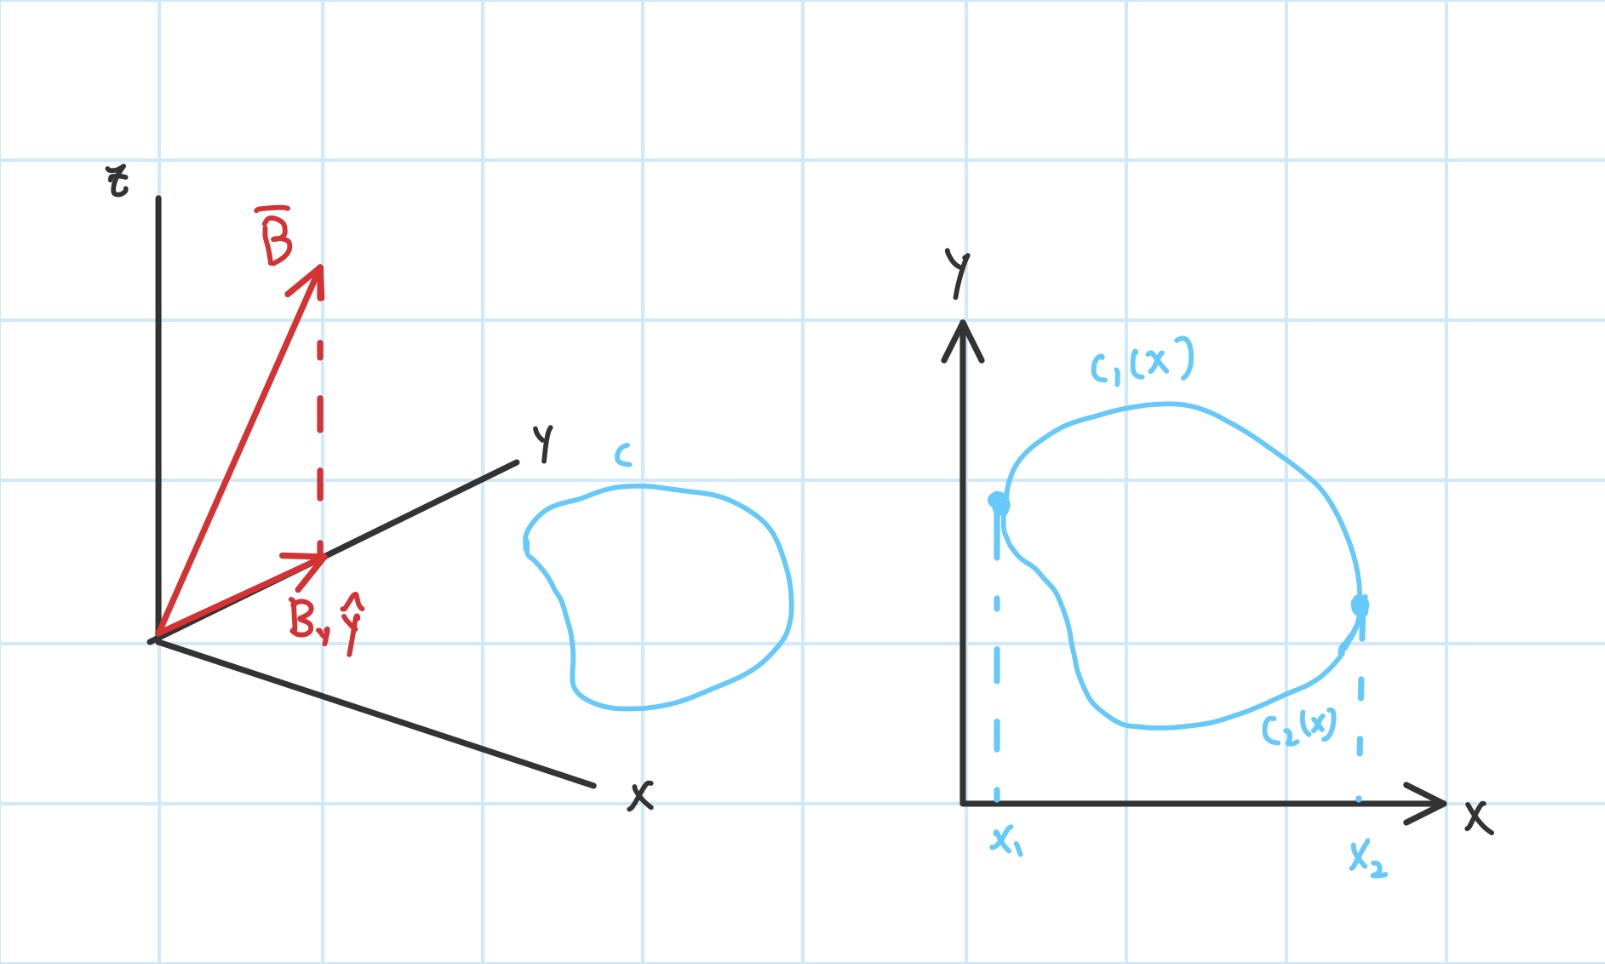 z
B̅
y
c
B_y ŷ
x
y
c₁(x)
c₂(x)
x
x₁
x₂